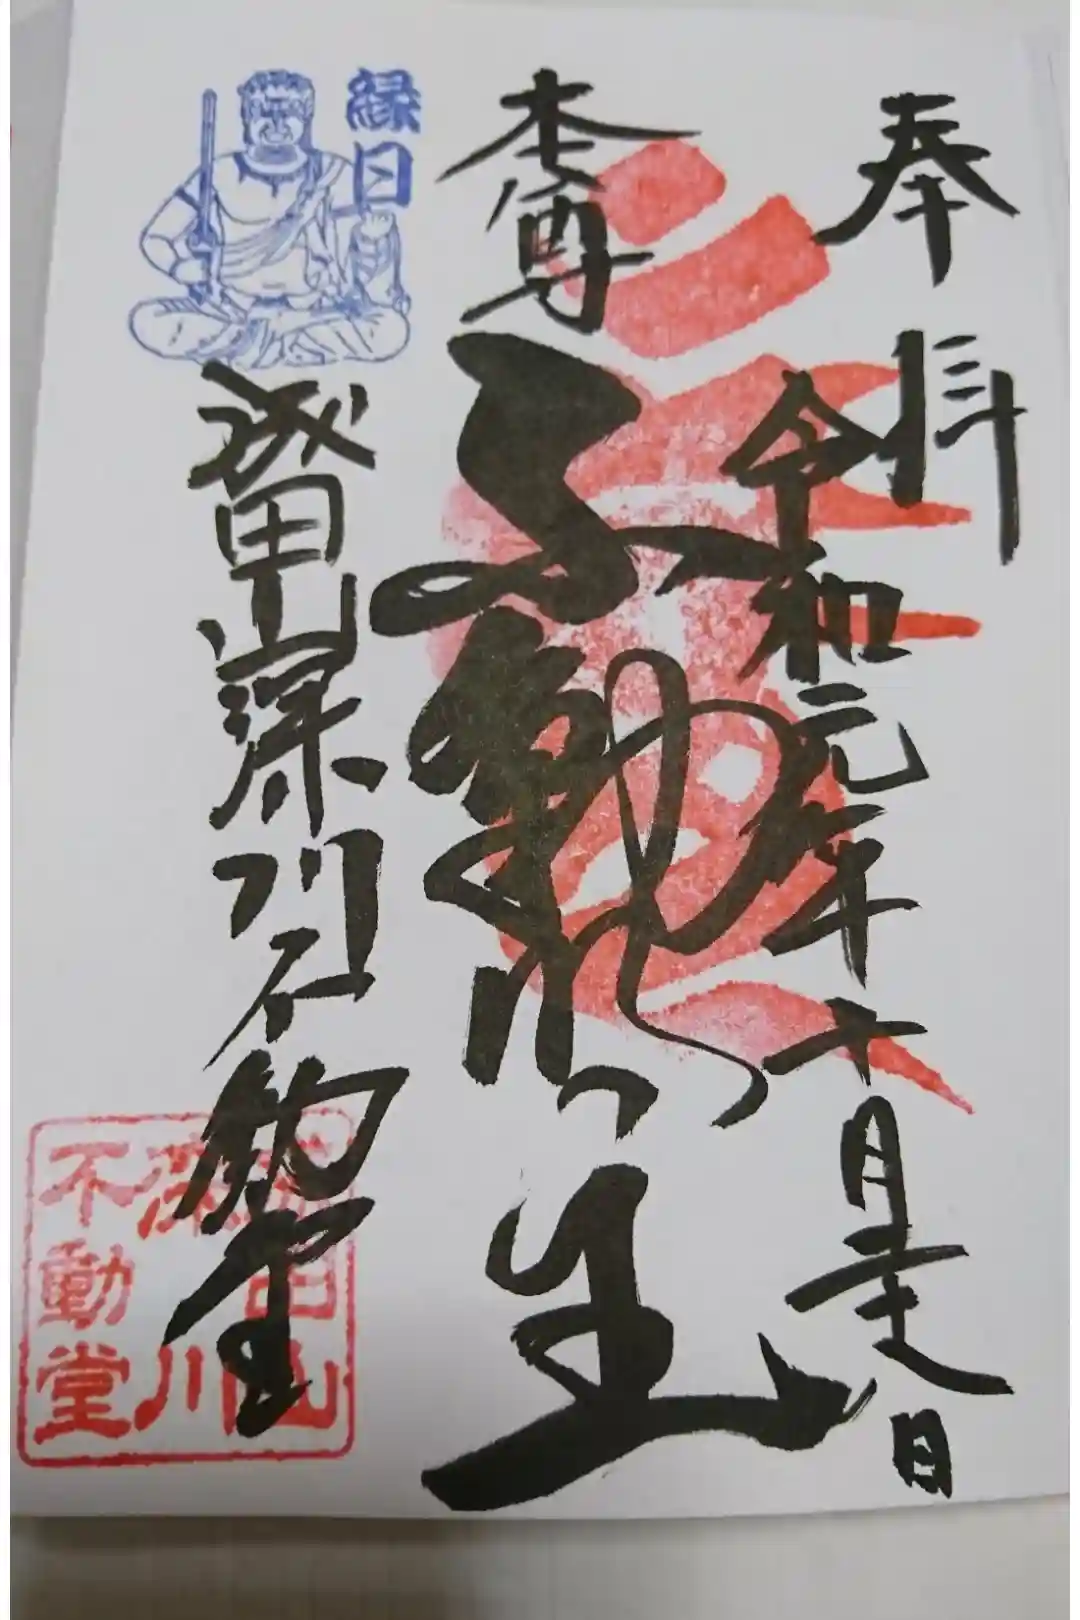 奉拝
令和元年十月
日
本尊
不動明王
成田山深川不動堂
縁日
成田山
深川
不動堂